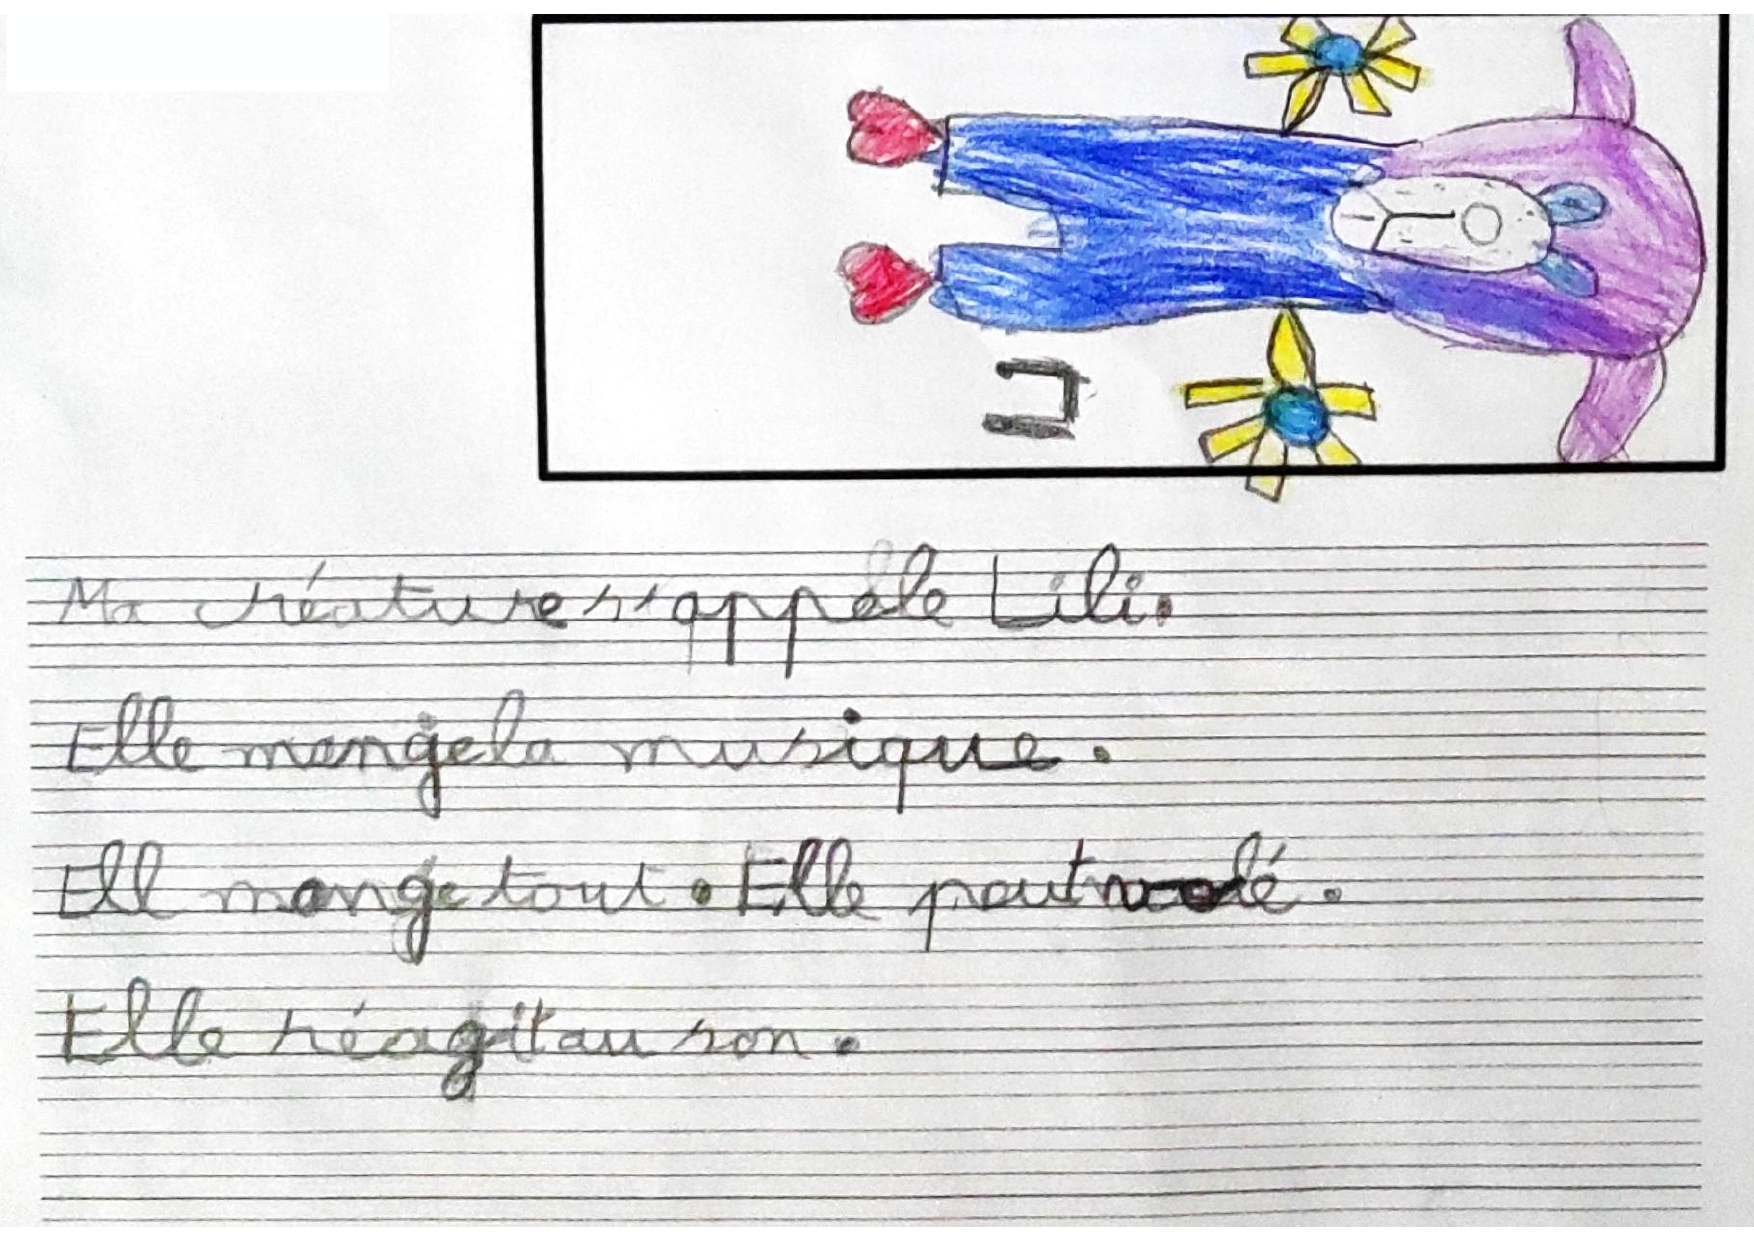 Ma créature s'appèle Lili.
Elle mange la musique.
Ell mange tout. Elle peut volé.
Elle réagit au son.